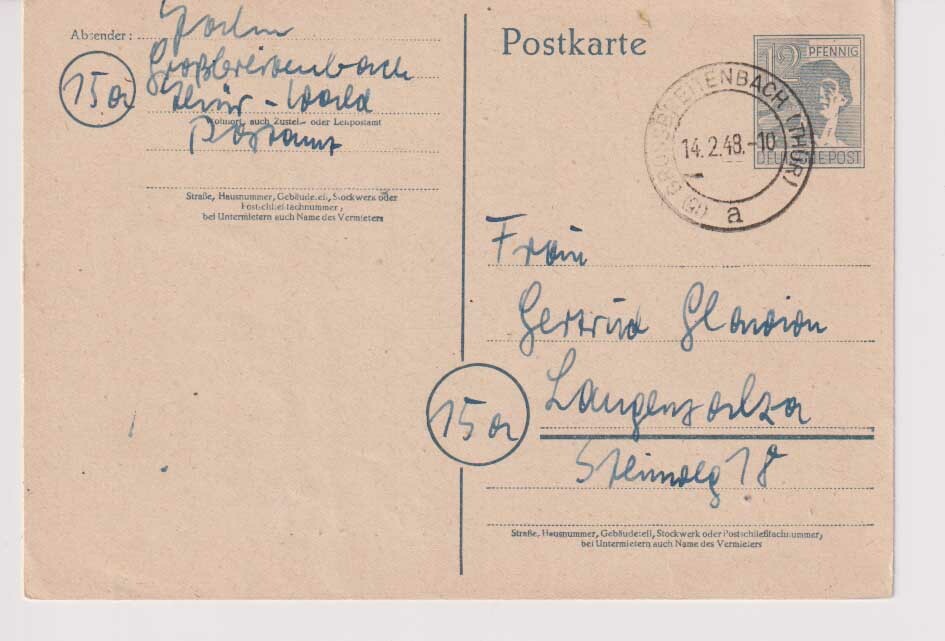 Absender:
Großbreitenbach
15a
Thür-Wald
Wohnort, auch Zustell- oder Leitpostamt
Postamt
Straße, Hausnummer, Gebäudeteil, Stockwerk oder
Postschließfachnummer,
bei Untermietern auch Name des Vermieters
Postkarte
12 PFENNIG
DEUTSCHE POST
GROSSBREITENBACH (THÜR)
14.2.48.-10
a
Frau
Gertrud
15a
Langensalza
Steinweg 18
Straße, Hausnummer, Gebäudeteil, Stockwerk oder Postschließfachnummer,
bei Untermietern auch Name des Vermieters